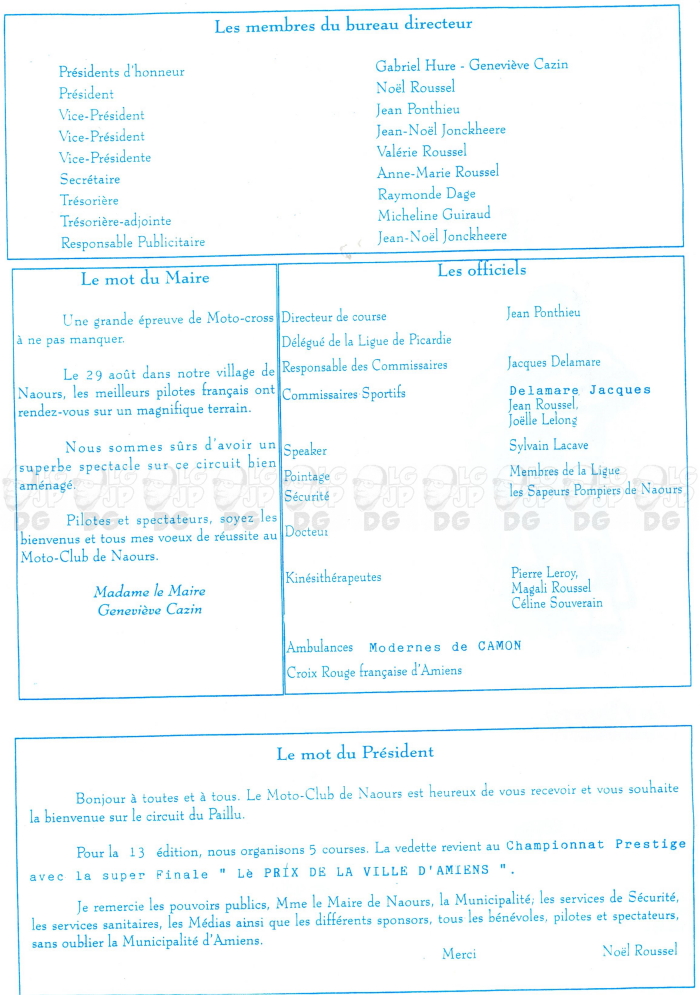 Les membres du bureau directeur
Présidents d'honneur Gabriel Hure - Geneviève Cazin
Président Noël Roussel
Vice-Président Jean Ponthieu
Vice-Président Jean-Noël Jonckheere
Vice-Présidente Valérie Roussel
Secrétaire Anne-Marie Roussel
Trésorière Raymonde Dage
Trésorière-adjointe Micheline Guiraud
Responsable Publicitaire Jean-Noël Jonckheere
Le mot du Maire
Une grande épreuve de Moto-cross
à ne pas manquer.
Le 29 août dans notre village de
Naours, les meilleurs pilotes français ont
rendez-vous sur un magnifique terrain.
Nous sommes sûrs d'avoir un
superbe spectacle sur ce circuit bien
aménagé.
Pilotes et spectateurs, soyez les
bienvenus et tous mes voeux de réussite au
Moto-Club de Naours.
Madame le Maire
Geneviève Cazin
Les officiels
Directeur de course Jean Ponthieu
Délégué de la Ligue de Picardie
Responsable des Commissaires Jacques Delamare
Commissaires Sportifs Delamare Jacques
Jean Roussel,
Joëlle Lelong
Speaker Sylvain Lacave
Pointage Membres de la Ligue
Sécurité les Sapeurs Pompiers de Naours
Docteur
Kinésithérapeutes Pierre Leroy,
Magali Roussel
Céline Souverain
Ambulances Modernes de CAMON
Croix Rouge française d'Amiens
Le mot du Président
Bonjour à toutes et à tous. Le Moto-Club de Naours est heureux de vous recevoir et vous souhaite
la bienvenue sur le circuit du Paillu.
Pour la 13 édition, nous organisons 5 courses. La vedette revient au Championnat Prestige
avec la super Finale " Lè PRIX DE LA VILLE D'AMIENS ".
Je remercie les pouvoirs publics, Mme le Maire de Naours, la Municipalité; les services de Sécurité,
les services sanitaires, les Médias ainsi que les différents sponsors, tous les bénévoles, pilotes et spectateurs,
sans oublier la Municipalité d'Amiens.
Merci Noël Roussel
LG JP DG LG JP DG LG JP DG LG JP DG LG JP DG LG JP DG LG JP DG LG JP DG LG JP DG LG JP DG